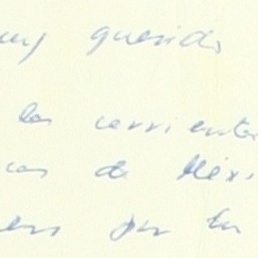 uy querido
las corriente
cas de Méxi
en por la